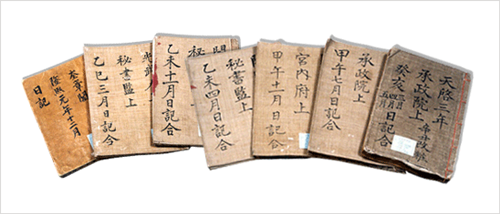 天啓三年
承政院上
癸亥
日記合
承政院上
甲午七月日記合
宮内府上
甲午十一月日記合
秘書監上
乙未四月日記合
乙未十一月日記合
秘書監上
乙巳三月日記合
奎章閣
隆熙元年十二月
日記